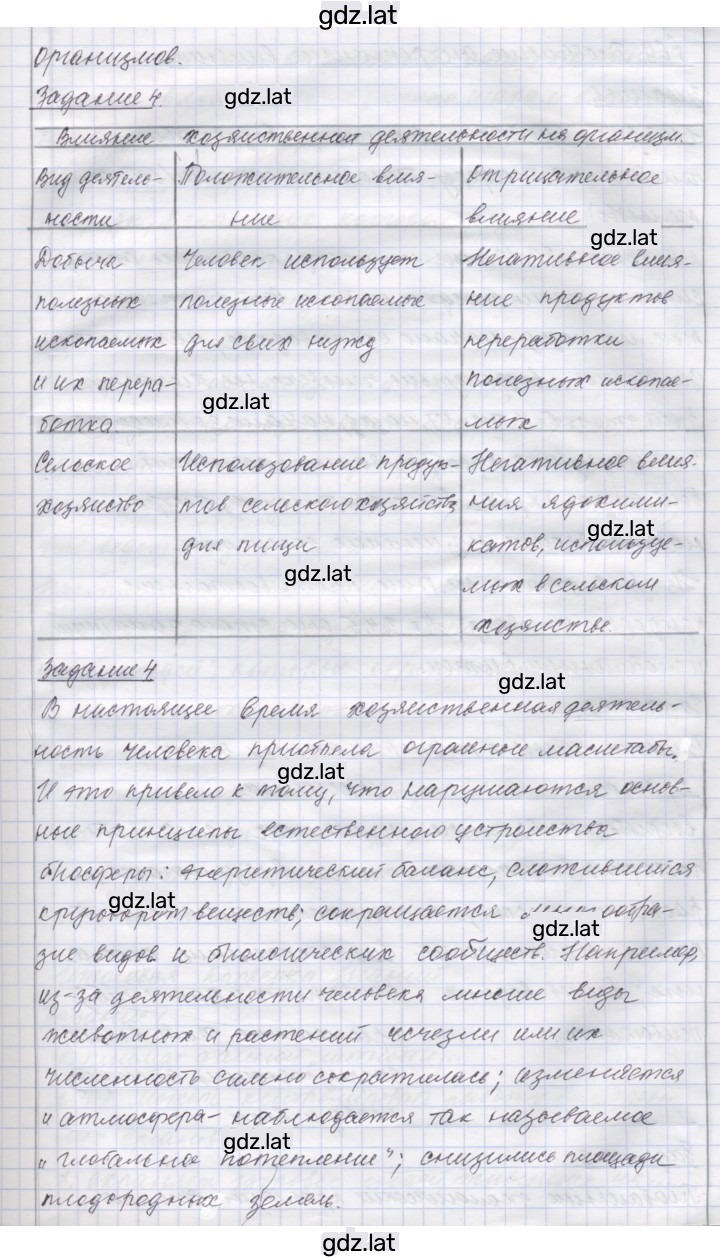 gdz.lat
организмов.
Задание 4.
gdz.lat
Влияние хозяйственной деятельности на организм.
Вид деятель-
ности
Положительное влия-
ние
отрицательное
влияние
gdz.lat
Добыча
полезных
ископаемых
и их перера-
ботка.
Человек использует
полезные ископаемые
для своих нужд
gdz.lat
Негативное влия-
ние продуктов
переработки
полезных ископае-
мых
Сельское
хозяйство
Использование продук-
тов сельского хозяйства
для пищи
gdz.lat
Негативное влия-
ния ядохими-
gdz.lat
катов, используе-
мых в сельском
хозяйстве.
Задание 4
gdz.lat
В настоящее время хозяйственная деятель-
ность человека приобрела огромные масштабы.
gdz.lat
И это привело к тому, что нарушаются основ-
ные принципы естественного устройства
биосферы: энергетический баланс, сложившийся
gdz.lat
круговорот веществ; сокращается
gdz.lat
зие видов и биологических сообществ. Например,
из-за деятельности человека многие виды
животных и растений исчезли или их
численность сильно сократилась; изменяется
и атмосфера- наблюдается так называемое
gdz.lat
"глобальное потепление"; снизились площади
плодородных земель.
gdz.lat